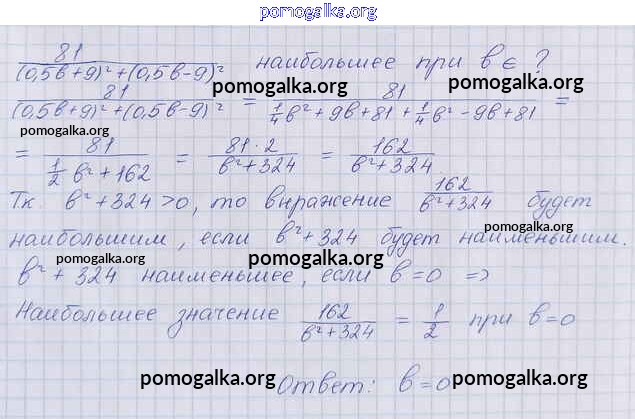 pomogalka.org
81 / ((0,5в+9)² + (0,5в-9)²) наибольшее при в є ?
pomogalka.org pomogalka.org
81 / ((0,5в+9)² + (0,5в-9)²) = 81 / (1/4 в² + 9в + 81 + 1/4 в² - 9в + 81) =
pomogalka.org pomogalka.org
= 81 / (1/2 в² + 162) = 81·2 / (в² + 324) = 162 / (в² + 324)
pomogalka.org
Тк в² + 324 > 0, то выражение 162 / (в² + 324) будет
pomogalka.org
наибольшим, если в² + 324 будет наименьшим.
pomogalka.org pomogalka.org
в² + 324 наименьшее, если в = 0 =>
Наибольшее значение 162 / (в² + 324) = 1/2 при в=0
pomogalka.org pomogalka.org
Ответ: в=0